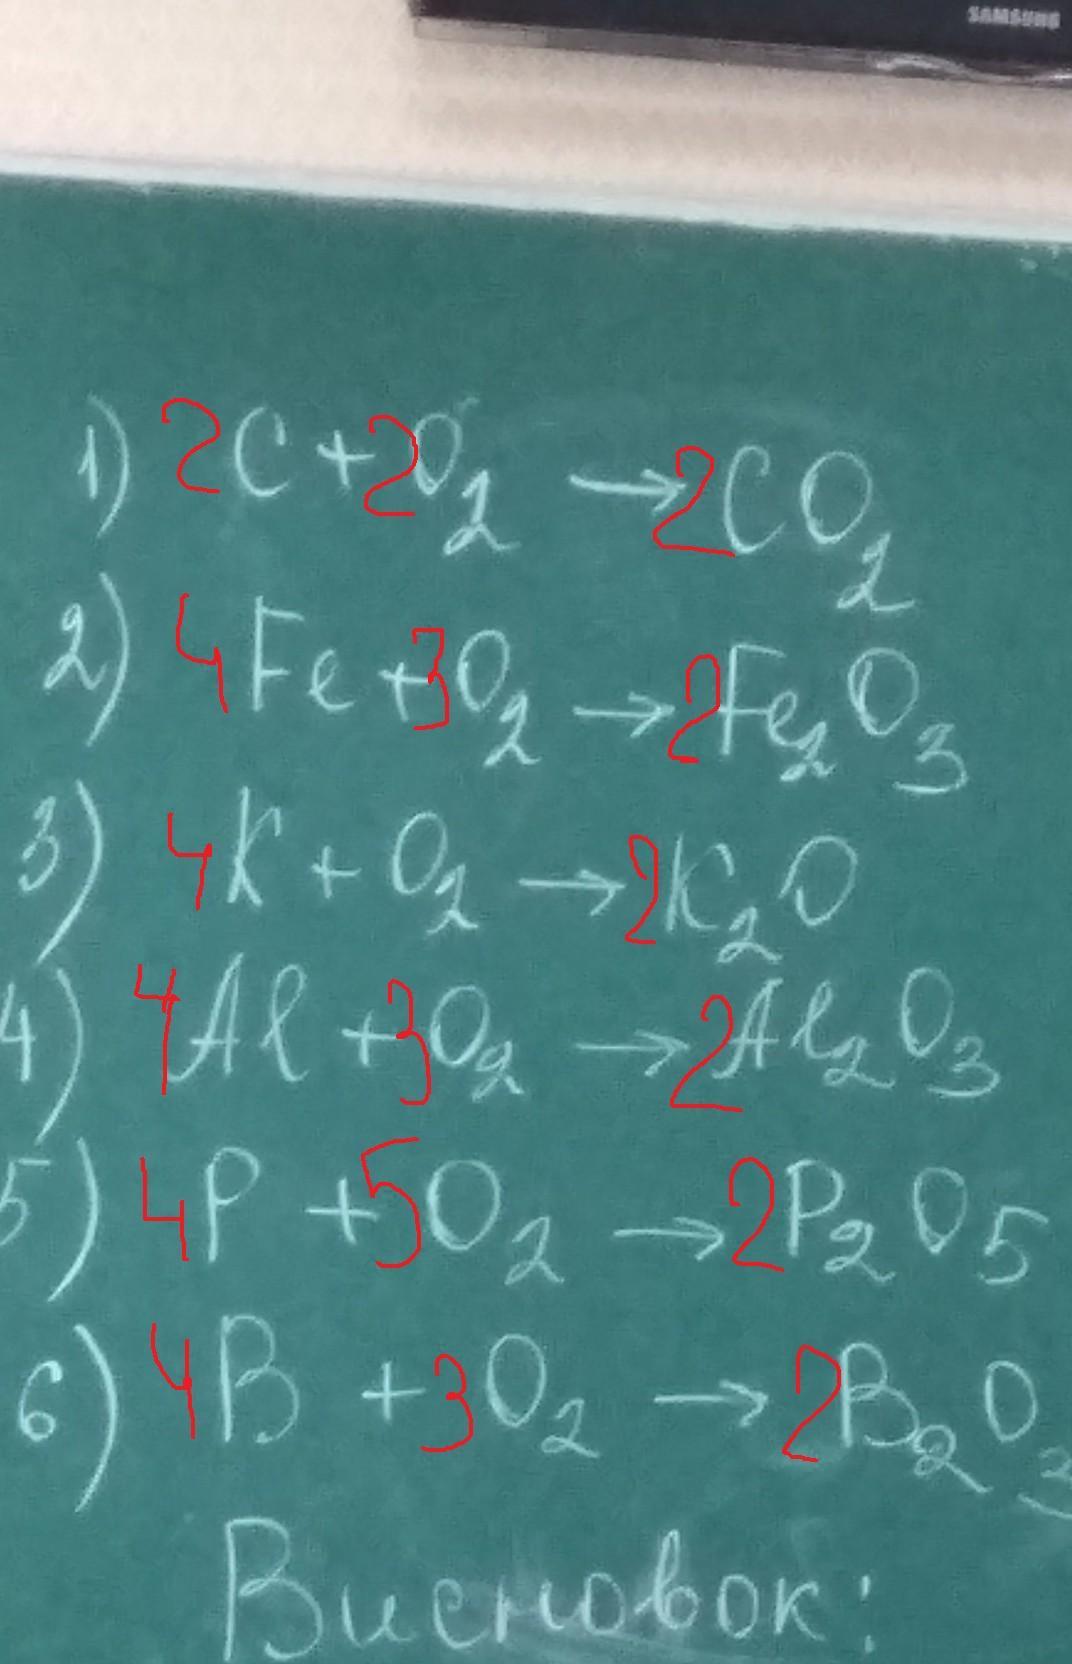 SAMSUNG
1) 2C + 2O₂ → 2CO₂
2) 4Fe + 3O₂ → 2Fe₂O₃
3) 4K + O₂ → 2K₂O
4) 4Al + 3O₂ → 2Al₂O₃
5) 4P + 5O₂ → 2P₂O₅
6) 4B + 3O₂ → 2B₂O₃
Висновок: